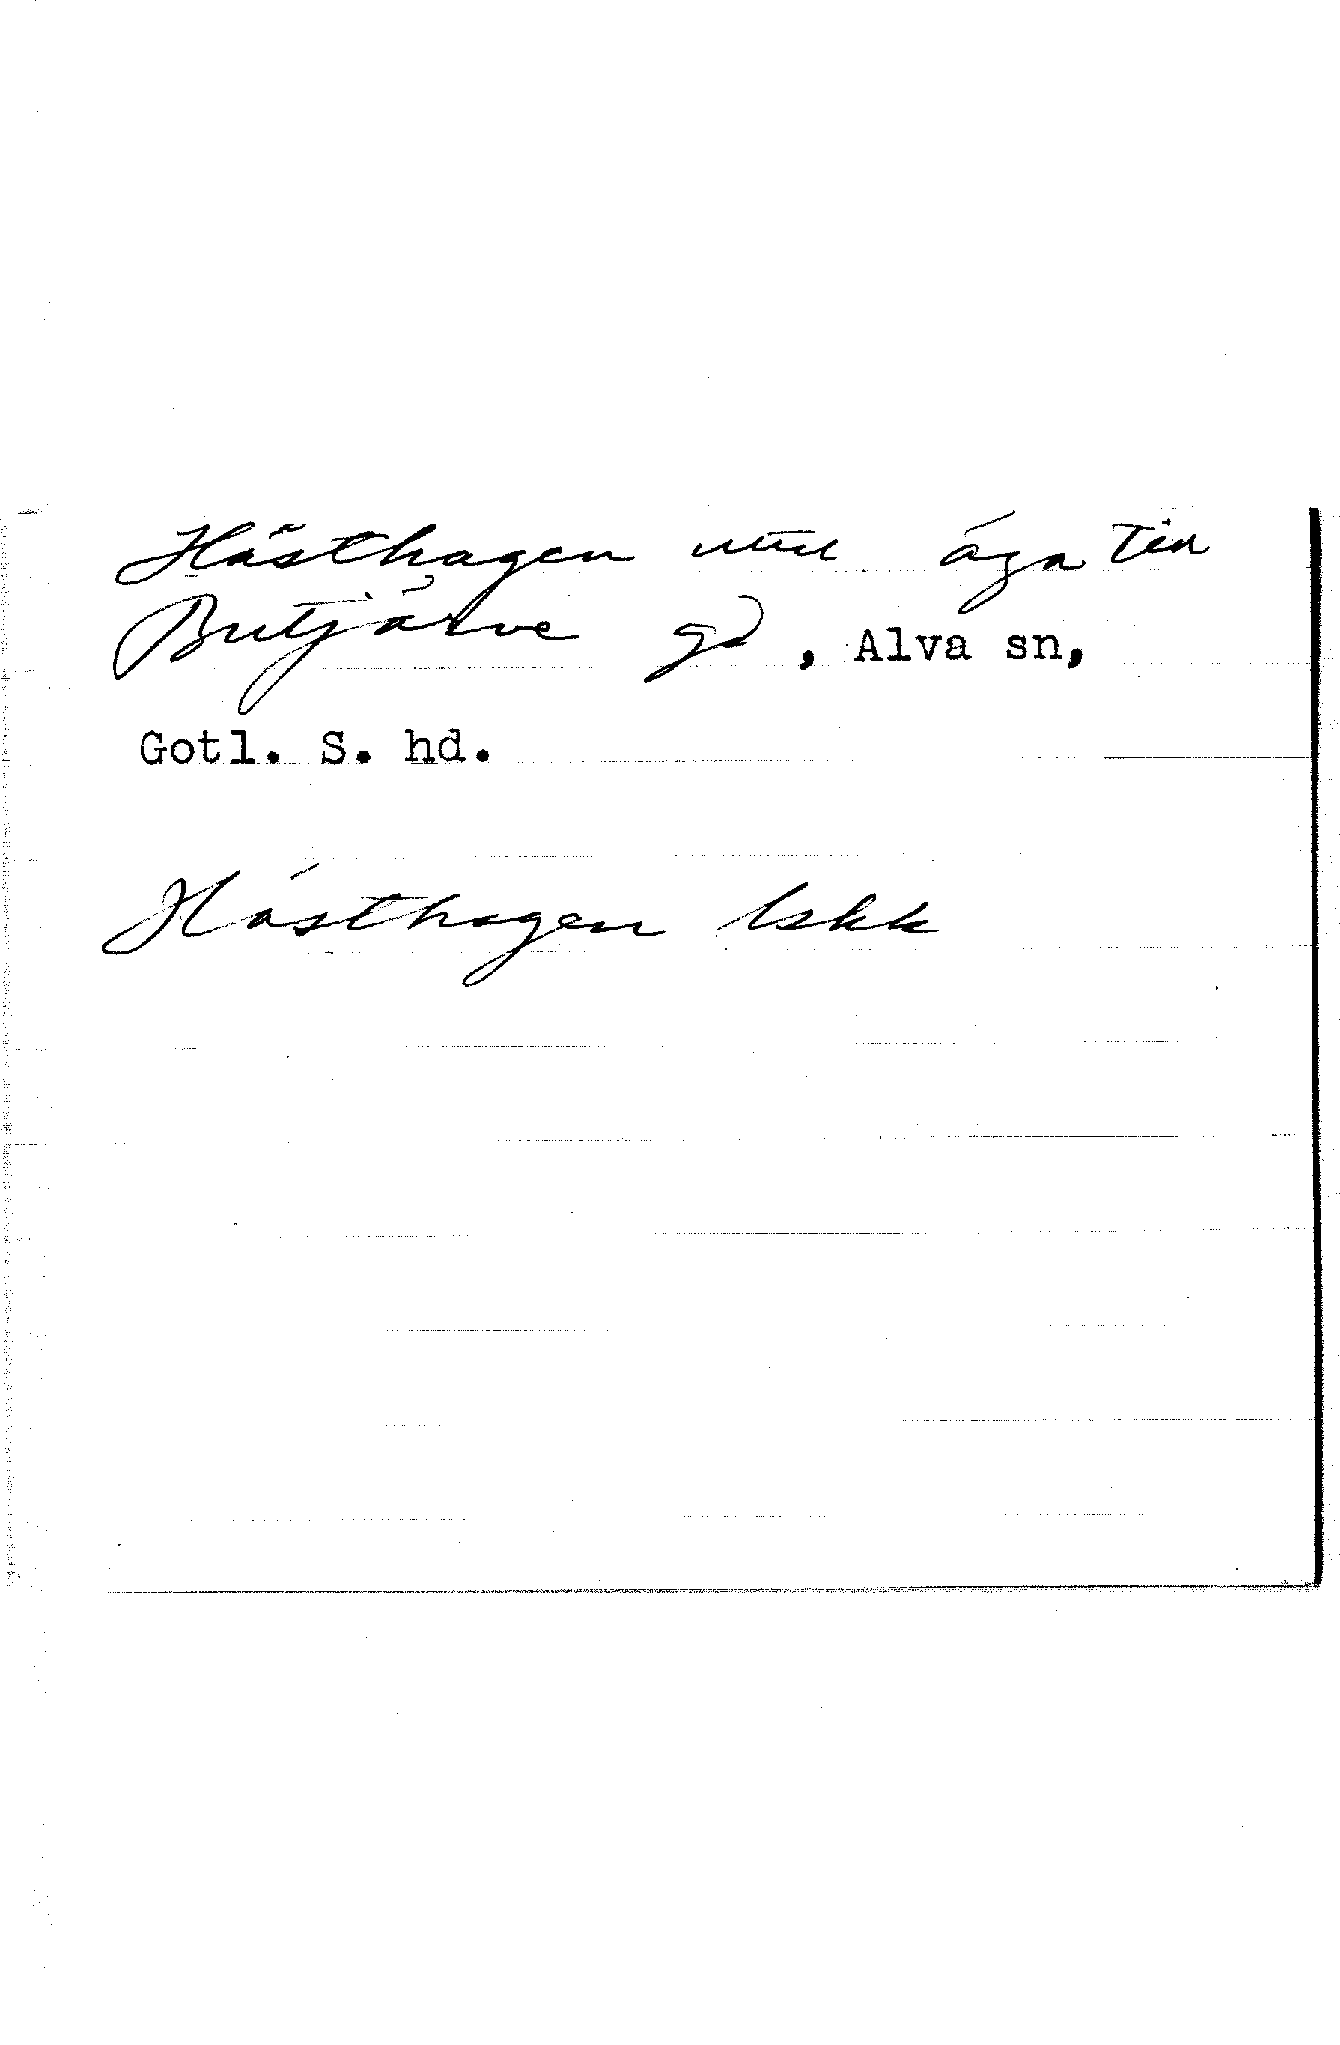 Hästhagen äga till
Butjärve gd, Alva sn,
Gotl. S. hd.
Hästhagen lskk